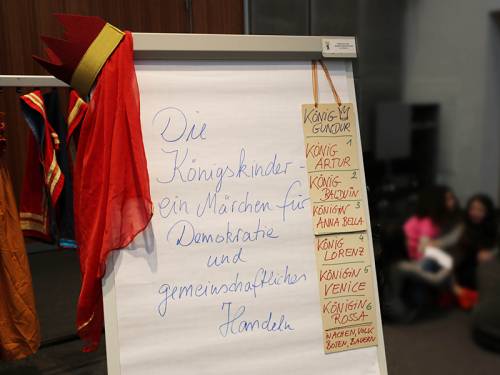 Die
Königskinder -
ein Märchen für
Demokratie
und
gemeinschaftliches
Handeln
KÖNIG
GUNDUR
1
KÖNIG
ARTUR
2
KÖNIG
BALDUIN
3
KÖNIGIN
ANNA BELLA
4
KÖNIG
LORENZ
5
KÖNIGIN
VENICE
6
KÖNIGIN
ROSSA
WACHEN, VOLK
BOTEN, BAUERN